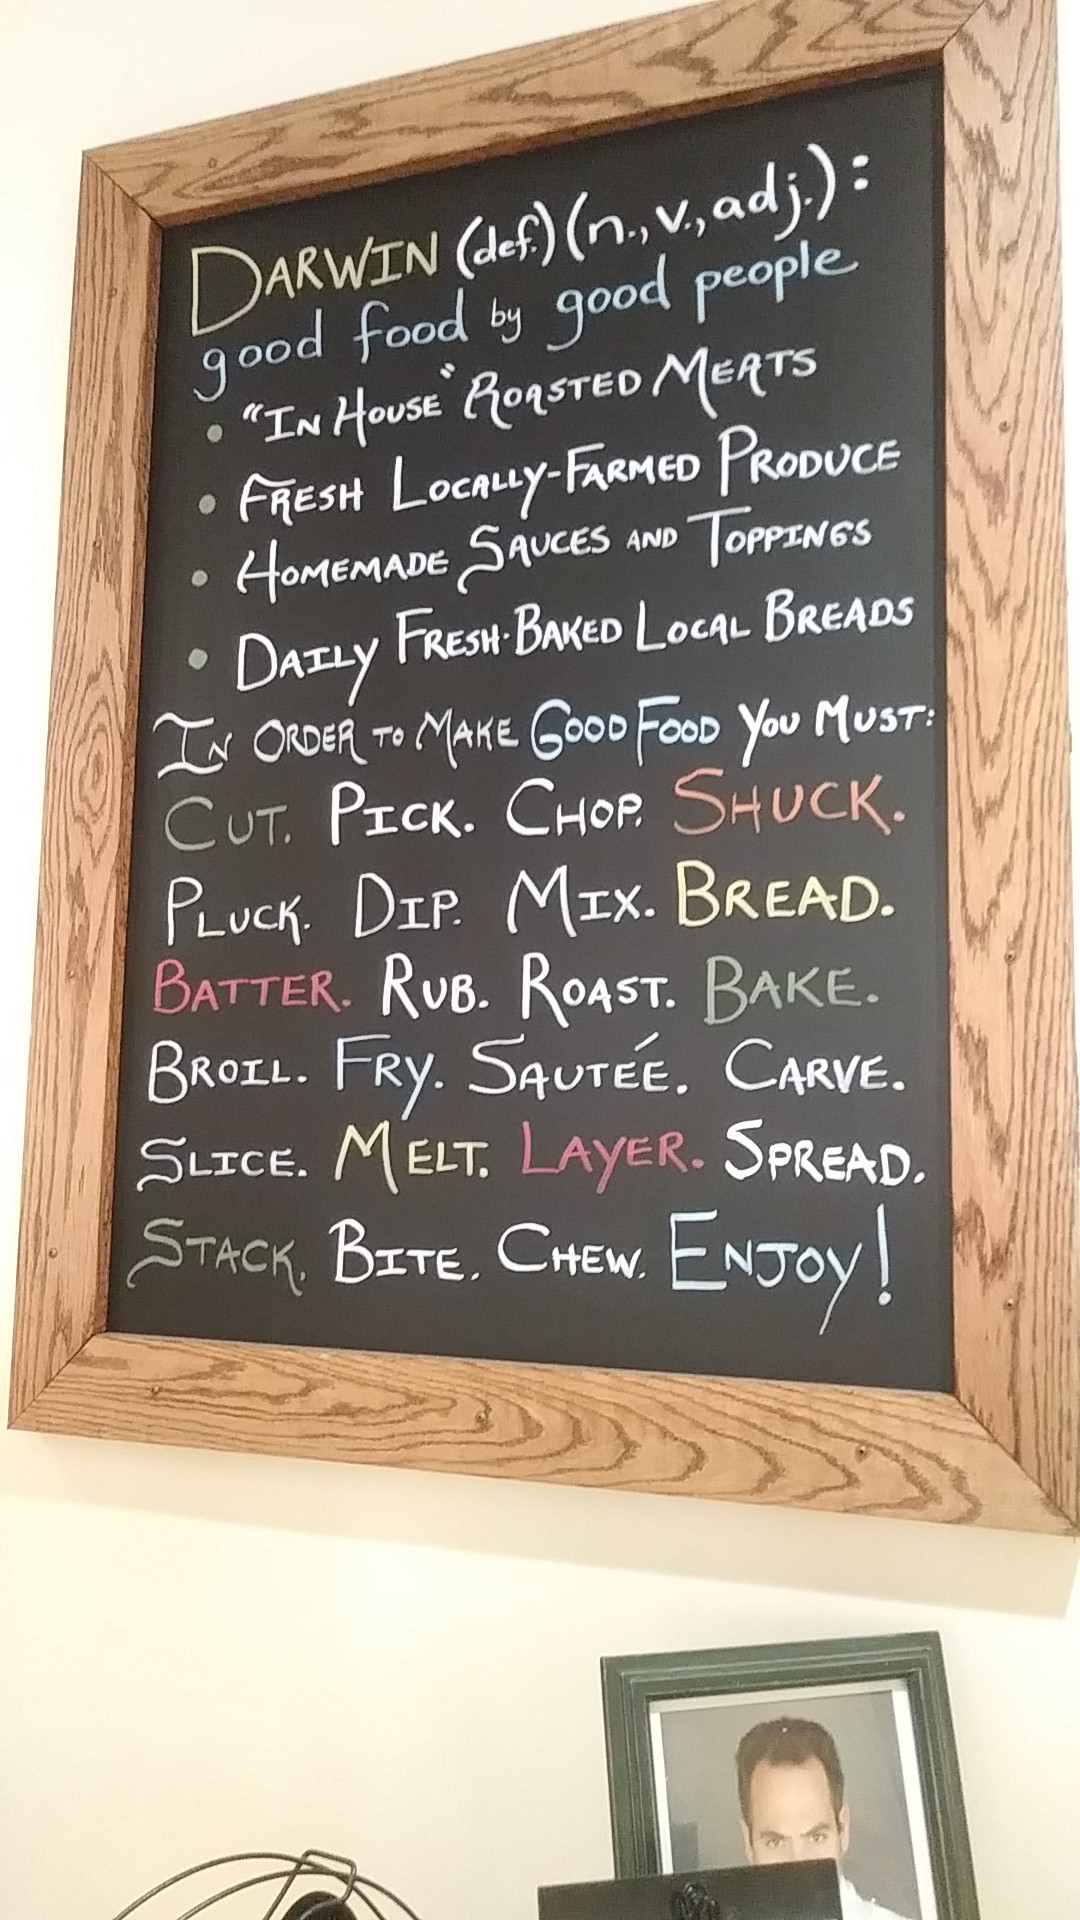 DARWIN (def.) (n., v., adj.):
good food by good people
• "IN HOUSE" ROASTED MEATS
• FRESH LOCALLY-FARMED PRODUCE
• HOMEMADE SAUCES AND TOPPINGS
• DAILY FRESH-BAKED LOCAL BREADS
IN ORDER TO MAKE GOOD FOOD YOU MUST:
CUT. PICK. CHOP. SHUCK.
PLUCK. DIP. MIX. BREAD.
BATTER. RUB. ROAST. BAKE.
BROIL. FRY. SAUTÉE. CARVE.
SLICE. MELT. LAYER. SPREAD.
STACK. BITE. CHEW. ENJOY!